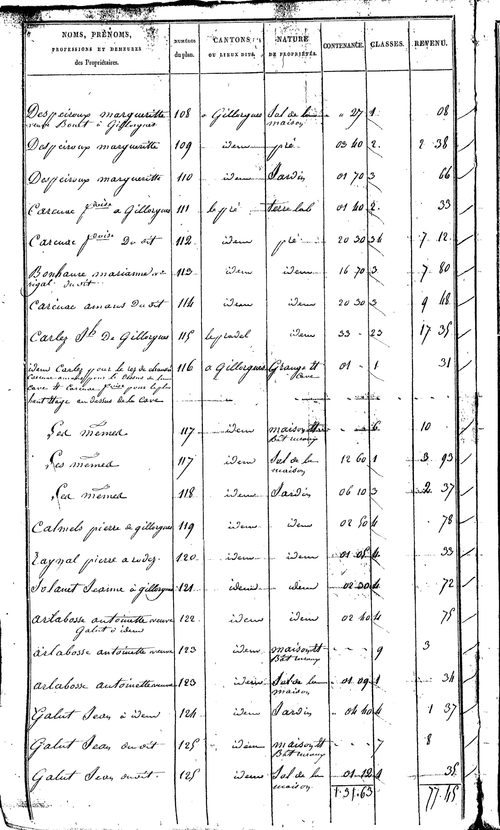 NOMS, PRÉNOMS, PROFESSIONS ET DEMEURES des Propriétaires. NUMÉROS du plan. CANTONS OU LIEUX DITS. NATURE DE PROPRIÉTÉS. CONTENANCE. CLASSES. REVENU.
Despeiroux margueritte 108 a Gillorgues Sol de la " 27 1 08
veuve à Gillorgues maison
Despeiroux margueritte 109 idem pré 03 40 2 2 38
Despeiroux margueritte 110 idem Jardin 01 70 3 66
a Gillorgues 111 le pré terre lab 01 40 2 33
Du dit 112 idem pré 20 30 34 7 12
Bonhaure marianne 113 idem idem 16 70 3 7 80
rigal du dit
amans Du dit 114 idem idem 20 30 3 9 48
Carles De Gillorgues 115 idem 33 - 23 17 35
idem Carles pour le rez de 116 a Gillorgues Grange et 01 - 1 31
cave
cave et pour le plus
haut étage au dessus de la cave
Les mêmes 117 idem maison et 6 10
Bât
Les mêmes 117 idem Sol de la 12 60 1 3 93
maison
Les mêmes 118 idem Jardin 06 10 3 2 37
Calmels pierre de gillorgues 119 idem idem 02 50 4 78
raynal pierre a rodez 120 idem idem 01 05 4 33
Solanet Jeanne à gillorgues 121 idem idem 02 30 4 72
arlabosse antoinette veuve 122 idem idem 02 40 4 75
Galut d idem
arlabosse antoinette veuve 123 idem maison et 9 3
Bât
arlabosse antoinette veuve 123 idem Sol de la 01 09 1 34
maison
Galut Jean à idem 124 idem Jardin 04 40 4 1 37
Galut Jean du dit 125 idem maison et 7 8
Bât
Galut Jean du dit 125 idem Sol de la 01 12 1 35
maison
1.31.63 77.45